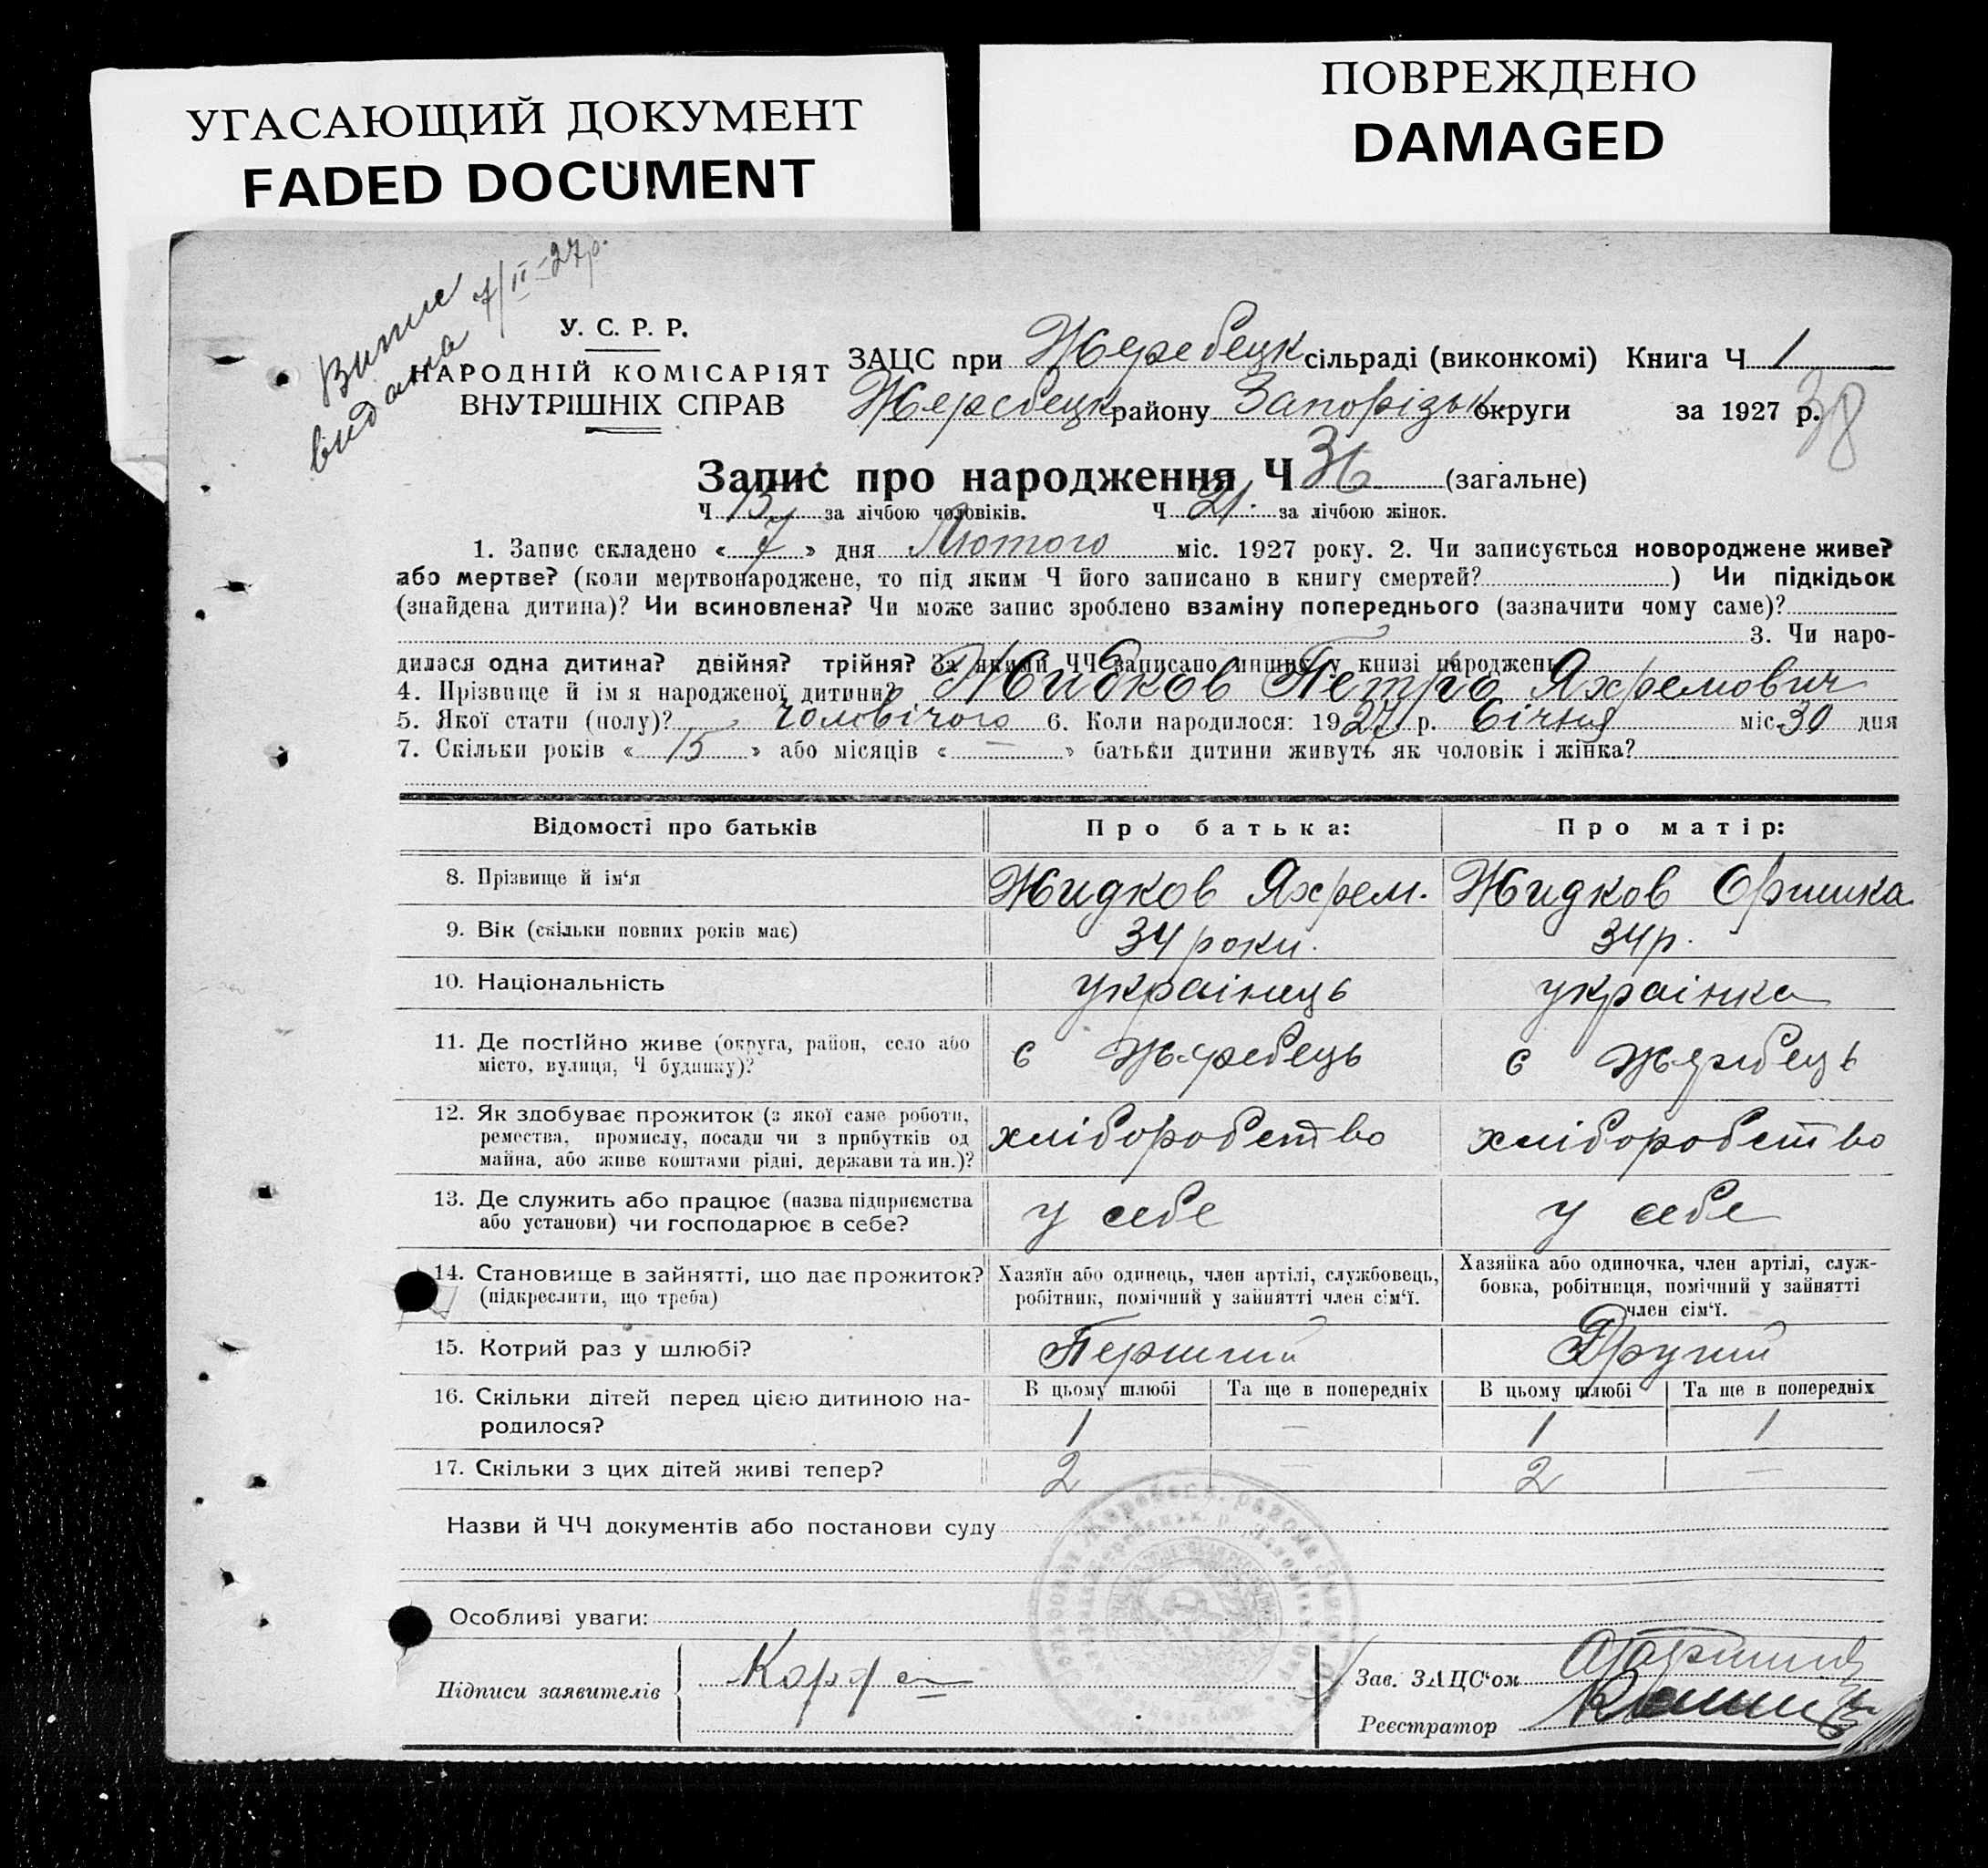 УГАСАЮЩИЙ ДОКУМЕНТ
FADED DOCUMENT
ПОВРЕЖДЕНО
DAMAGED
Випис
видана 7/II-27р.
У. С. Р. Р.
НАРОДНІЙ КОМІСАРІЯТ
ВНУТРІШНІХ СПРАВ
ЗАЦС при Жеребецк сільраді (виконкомі) Книга Ч 1
Жеребецк району Запорізьк округи за 1927 р.
38
Запис про народження Ч 36 (загальне)
Ч 15 за лічбою чоловіків. Ч 21. за лічбою жінок.
1. Запис складено « 7 » дня Лютого міс. 1927 року. 2. Чи записується новороджене живе?
або мертве? (коли мертвонароджене, то під яким Ч його записано в книгу смертей? ) Чи підкідьок
(знайдена дитина)? Чи всиновлена? Чи може запис зроблено взаміну попереднього (зазначити чому саме)?
3. Чи наро-
дилася одна дитина? двійня? трійня? За якими ЧЧ записано инших у книзі народжень
4. Прізвище й ім я народженої дитини? Жидков Петро Яхремович
5. Якої стати (полу)? чоловічого 6. Коли народилося: 1927 р. Січня міс. 30 дня
7. Скільки років « 15 » або місяців « — » батьки дитини живуть як чоловік і жінка?
Відомості про батьків Про батька: Про матір:
8. Прізвище й ім‘я Жидков Яхрем. Жидков Оришка
9. Вік (скільки повних років має) 34 роки. 34 р.
10. Національність українець українка
11. Де постійно живе (округа, район, село або
місто, вулиця, Ч будинку)? с Жеребець с Жеребець
12. Як здобуває прожиток (з якої саме роботи,
ремества, промислу, посади чи з прибутків од
майна, або живе коштами рідні, держави та ин.)? хліборобство хліборобство
13. Де служить або працює (назва підприємства
або установи) чи господарює в себе? у себе у себе
14. Становище в зайнятті, що дає прожиток?
(підкреслити, що треба)
Хазяїн або одинець, член артілі, службовець,
робітник, помічний у зайнятті член сім‘ї.
Хазяйка або одиночка, член артілі, служ-
бовка, робітниця, помічний у зайнятті
член сім‘ї.
15. Котрий раз у шлюбі? Перший Другий
16. Скільки дітей перед цією дитиною на-
родилося?
В цьому шлюбі Та ще в попередніх В цьому шлюбі Та ще в попередніх
1 — 1 1
17. Скільки з цих дітей живі тепер? 2 — 2 —
Назви й ЧЧ документів або постанови суду
Особливі уваги:
Підписи заявителів
Зав. ЗАЦС‘ом
Реєстратор